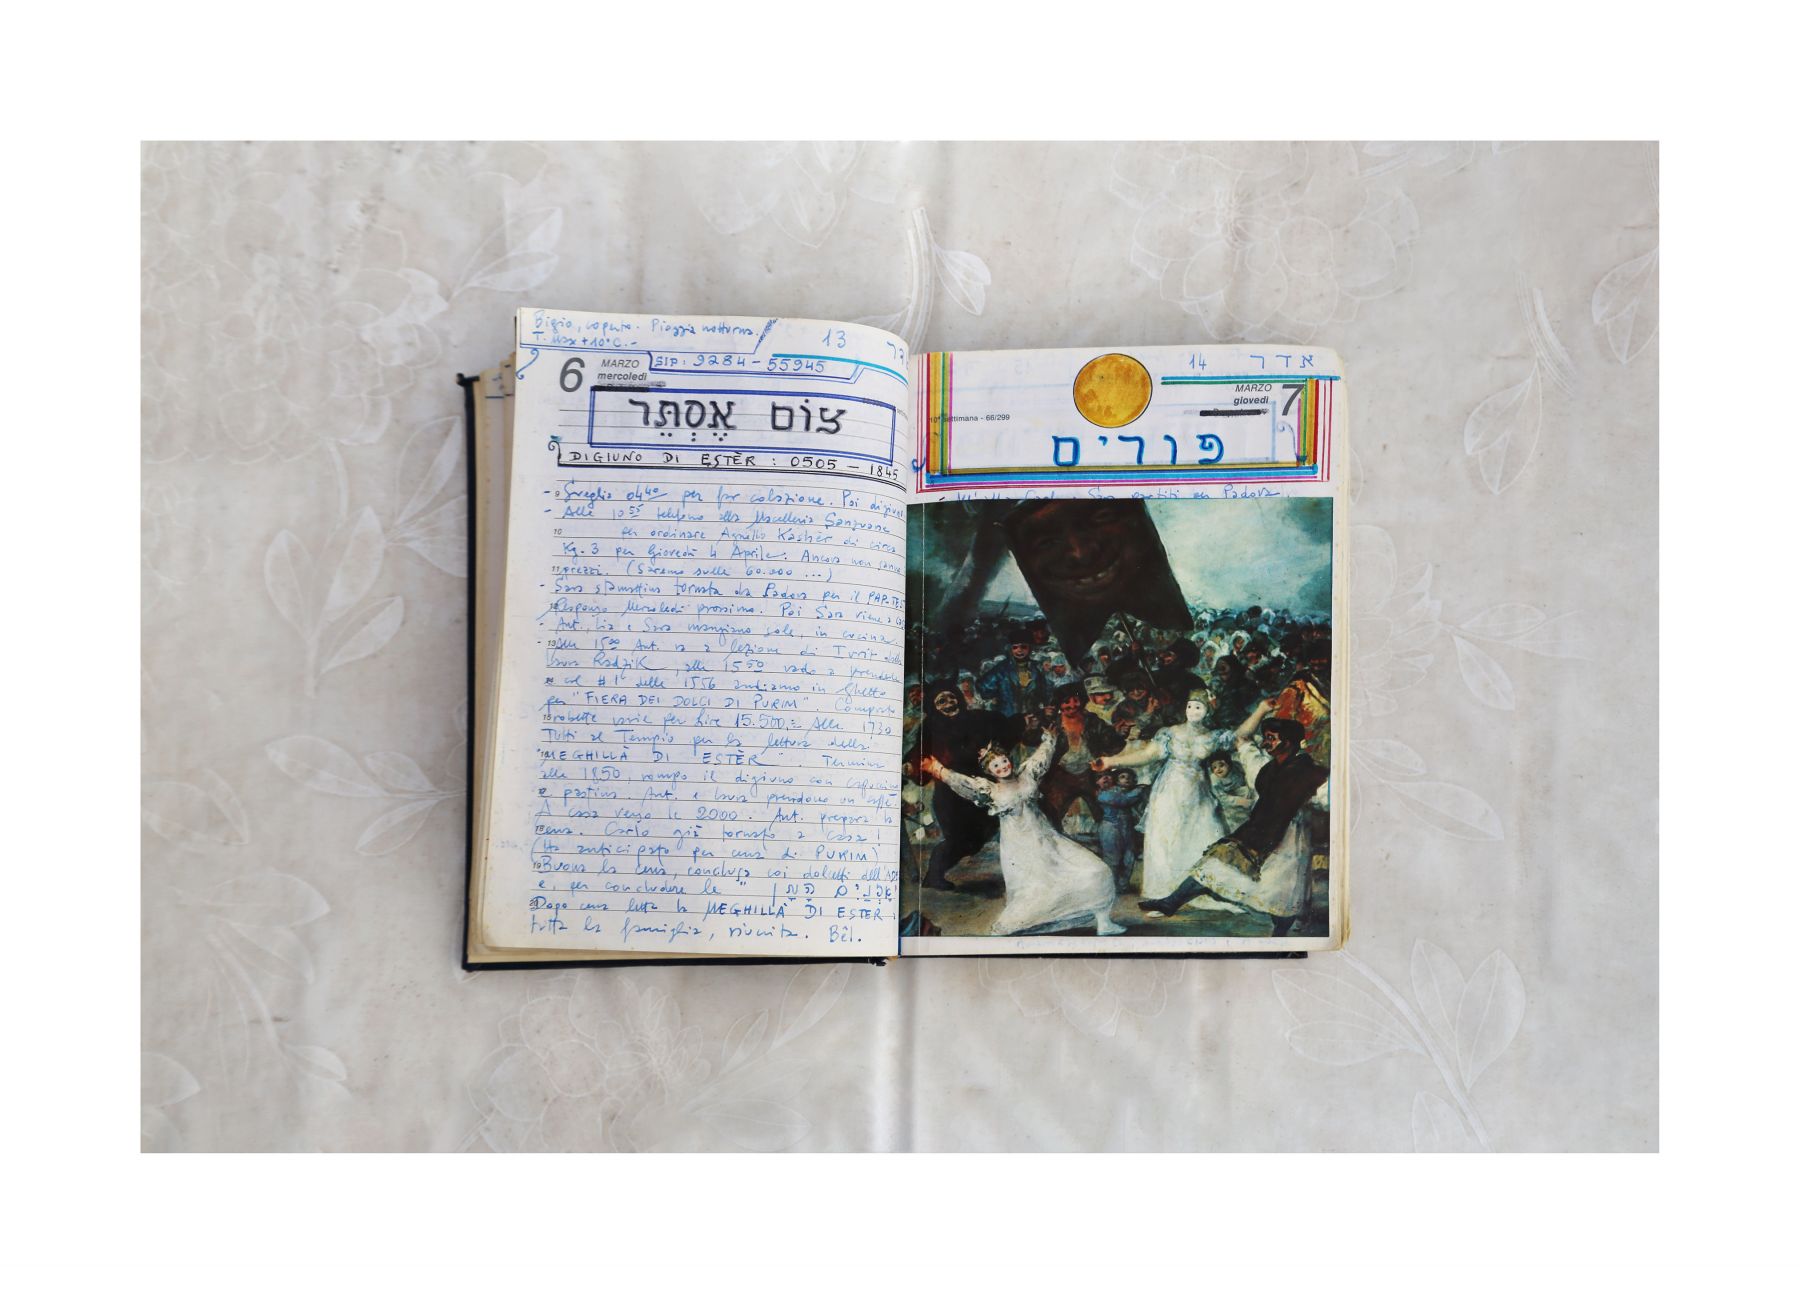 Bigio, coperto. Pioggia notturna.
T. Max +10°C.-
13
SIP: 9284-55945
6 MARZO
mercoledì
צוֹם אֶסְתֵּר
DIGIUNO DI ESTÈR: 0505 - 1845
- Sveglia 04⁴⁰ per far colazione. Poi digiuno
- Alle 10⁵⁵ telefono alla Macelleria
per ordinare Agnello Kashèr di circa
Kg. 3 per Giovedì 4 Aprile. Ancora non sanno
prezzi. (Saremo sulle 60.000 ...)
- Sara stamattina tornata da Padova per il PAP-TEST
Mercoledì prossimo. Poi Sara viene a casa
- Ant., Lia e Sara mangiano sole, in cucina.
- Alle 15⁰⁰ Ant. va a lezione di Ivrit dalla
RadziK, alle 15⁵⁰ vado a prenderla
e col #1 delle 1556 andiamo in Ghetto
per "FIERA DEI DOLCI DI PURIM". Comprato
robette varie per Lire 15.500,= Alle 1730
Tutti al Tempio per la lettura della
"MEGHILLÀ DI ESTÈR". Termina
alle 1850, rompo il digiuno con cappuccino
e pastina. Ant. e prendono un caffè.
A casa verso le 2000. Ant. prepara la
cena. Carlo già tornato a casa!
(Ha anticipato per cena di PURIM)
Buona la cena, conclusa coi dolcetti dell'
e, per concludere le "
Dopo cena letta la MEGHILLÀ DI ESTER,
tutta la famiglia, riunita. Bèl.
14 אדר
MARZO 7
giovedì
10ª settimana - 66/299
פורים
Sara partiti per Padova.